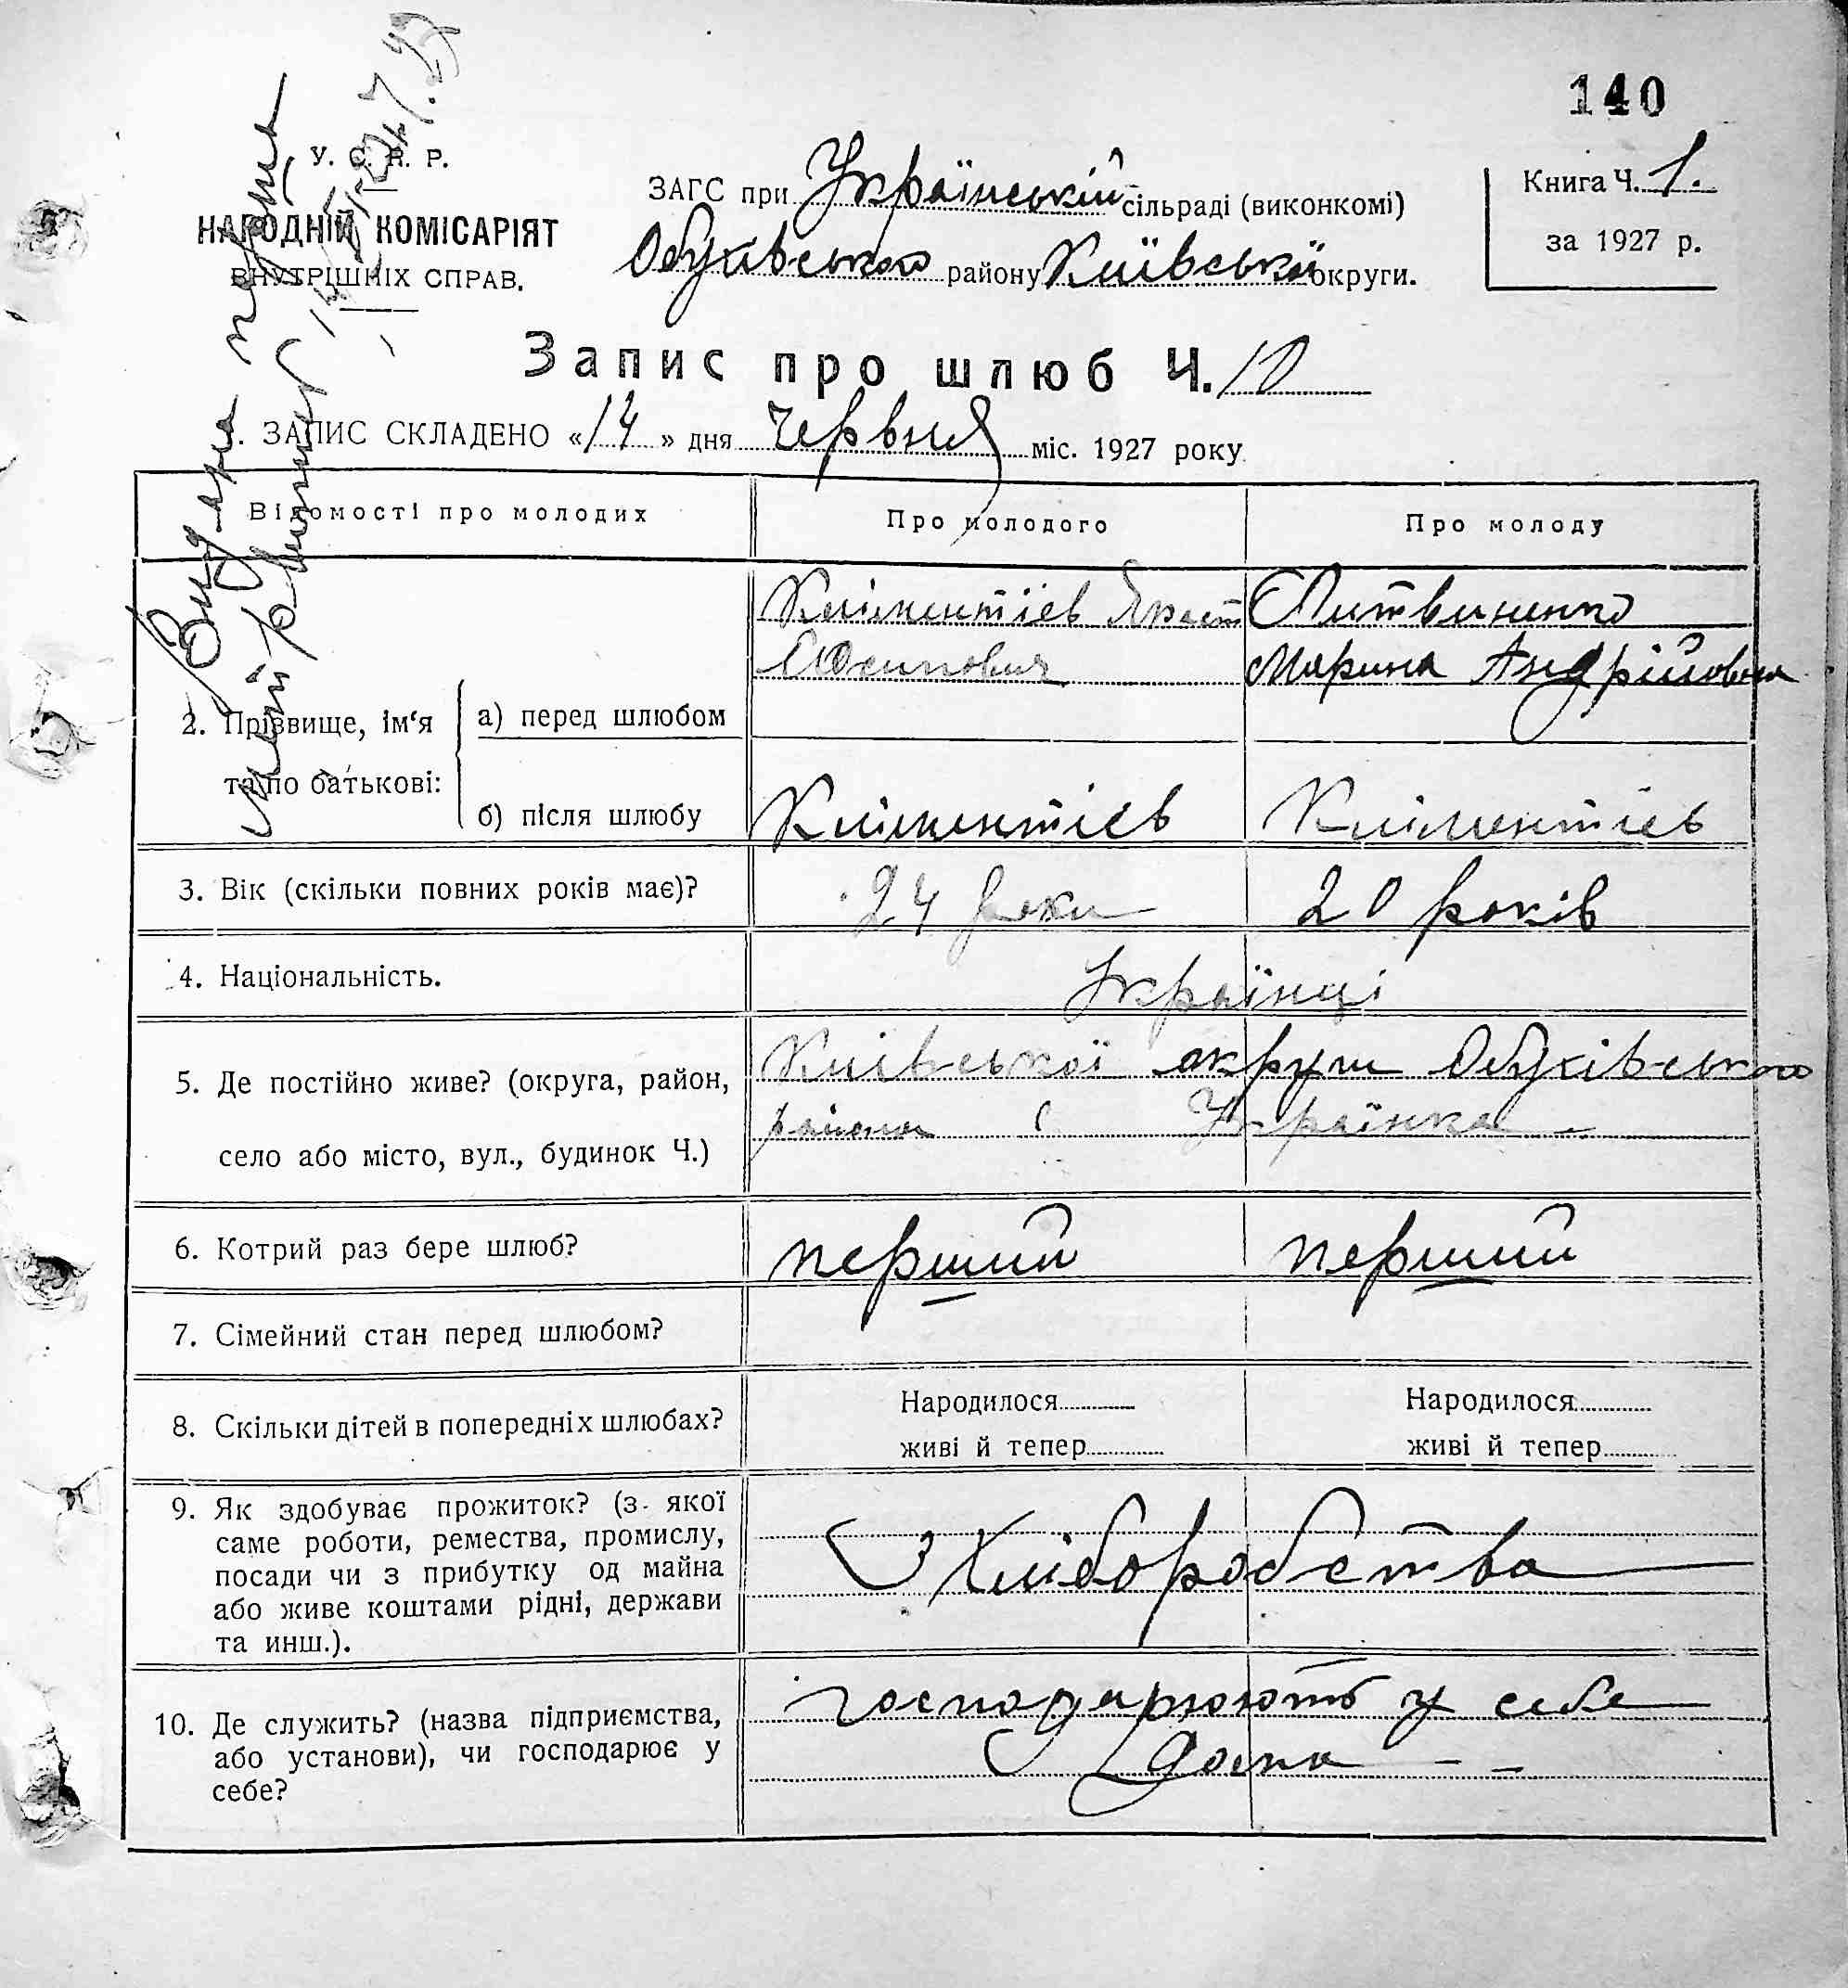 140
У. С. Р. Р.
НАРОДНІЙ КОМІСАРІЯТ
ВНУТРІШНІХ СПРАВ.
ЗАГС при Українській сільраді (виконкомі)
Обухівського району Київської округи.
Книга Ч. 1.
за 1927 р.
Запис про шлюб Ч. 10
1. ЗАПИС СКЛАДЕНО «14» дня червня міс. 1927 року
Видана
Відомості про молодих
Про молодого
Про молоду
2. Прізвище, ім'я та по батькові:
а) перед шлюбом
Кліментіїв
Юсипович
Литвиненко
Марина Андрійовна
б) після шлюбу
Кліментієв
Кліментієв
3. Вік (скільки повних років має)?
24 роки
20 років
4. Національність.
Українці
5. Де постійно живе? (округа, район,
село або місто, вул., будинок Ч.)
Київської округи Обухівського
району с Українка
6. Котрий раз бере шлюб?
перший
перший
7. Сімейний стан перед шлюбом?
8. Скільки дітей в попередніх шлюбах?
Народилося
живі й тепер
Народилося
живі й тепер
9. Як здобуває прожиток? (з якої
саме роботи, ремества, промислу,
посади чи з прибутку од майна
або живе коштами рідні, держави
та инш.).
З Хліборобства
10. Де служить? (назва підприємства,
або установи), чи господарює у
себе?
господарюють у себе
дома